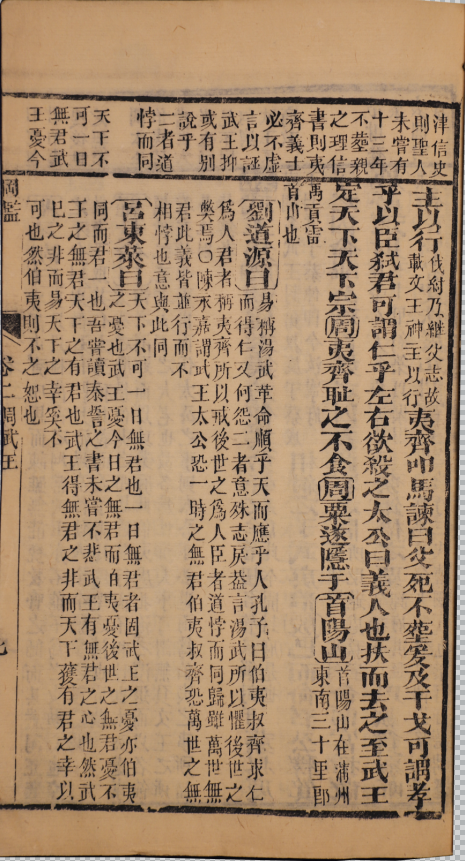 津信史
則聖人
未嘗有
十三年
不塟親
之理信
書則夷
齊義士
必不虛
言以誣
武王抑
或有別
說乎
二者道
悖而同
天下不
可一日
無君武
王憂今
主以行伐紂乃繼父志故載文王神主以行夷齊叩馬諫曰父死不塟爰及干戈可謂孝
乎以臣弑君可謂仁乎左右欲殺之太公曰義人也扶而去之至武王
定天下天下宗周夷齊耻之不食周粟遂隱于首陽山首陽山在蒲州東南三十里即
禹貢雷首山也
劉道源曰易稱湯武革命順乎天而應乎人孔子曰伯夷叔齊求仁
而得仁又何怨二者意殊志戾葢言湯武所以懼後世之
爲人君者稱夷齊所以戒後世之爲人臣者道悖而同歸雖萬世無
弊焉○陳永嘉謂武王太公恐一時之無君伯夷叔齊恐萬世之無
君此義皆並行而不
相悖也意與此同
呂東萊曰天下不可一日無君也一日無君者固武王之憂亦伯夷
之憂也武王憂今日之無君而伯夷憂後世之無君憂不
同而君一也吾嘗讀泰誓之書未嘗不悲武王有無君之心也然武
王之無君天下之有君也武王得無君之非而天下獲有君之幸以
已之非而易天下之幸奚不
可也然伯夷則不之恕也
綱鑑 卷二周武王